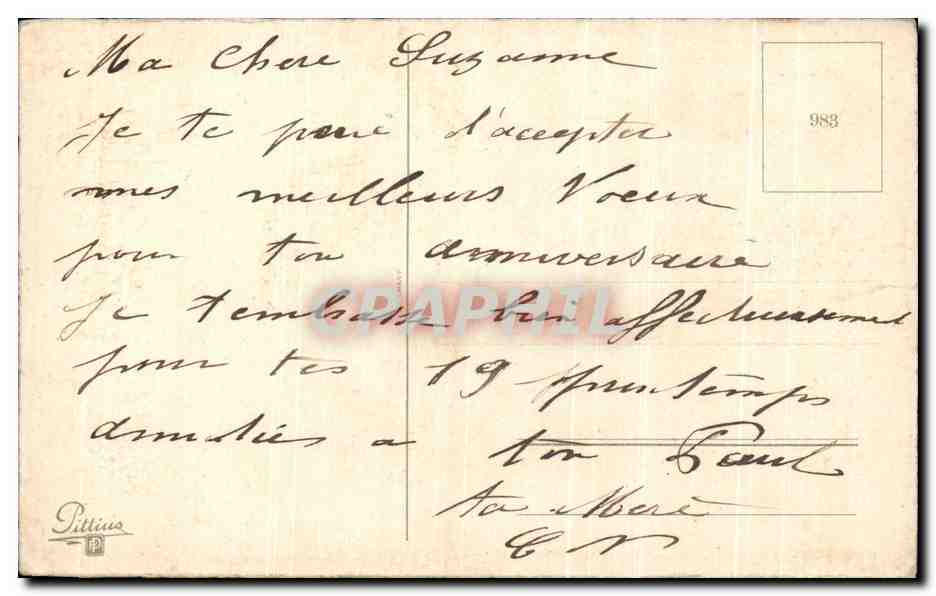 Ma Chere Suzanne
983
Je te prie d'accepter
mes meilleurs Voeux
pour ton anniversaire
CPAPHIL
Je t'embrasse bien affectueusement
pour tes 19 printemps
amitiés a ton Paul
ta Mere
Pittius
P